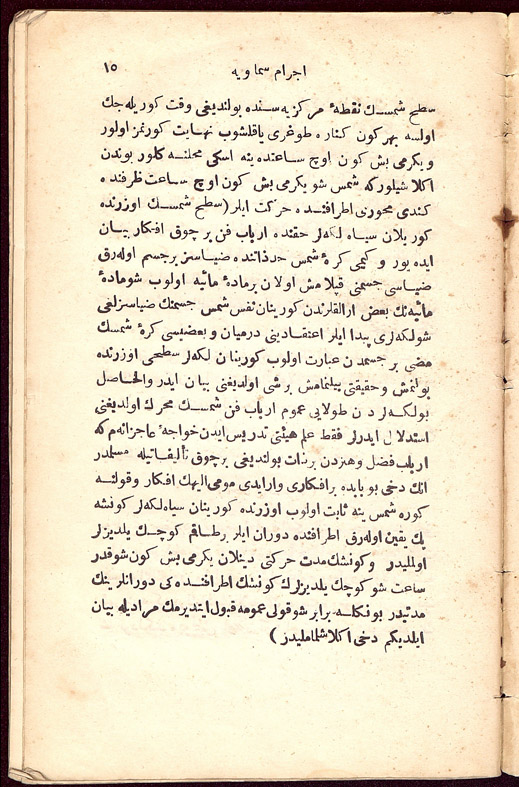 ١٥ اجرام سماويه
سطح شمسك نقطهٔ مركزيه سنده بولنديغى وقت كوريله جك
اولسه بهركون كناره طوغرى ياقلشوب نهايت كورنمز اولور
و يكرمى بش كون اوچ ساعتده ينه اسكى محلنه كلور بوندن
اكلاشيلوركه شمس شو يكرمى بش كون اوچ ساعت ظرفنده
كندى محورى اطرافنده حركت ايلر (سطح شمسك اوزرنده
كوريلان سياه لكه لر حقنده ارباب فن برچوق افكار بيان
ايده يور و كيمى كرهٔ شمس حد ذاتنده ضياسز برجسم اوله رق
ضياسى جسمنى قپلامش اولان برمادهٔ مائيه اولوب شومادهٔ
مائيه نك بعض ارالقلرندن كورينان نفس شمس جسمنك ضياسزلغى
شولكه لرى پيدا ايلر اعتقادينى درميان و بعضيسى كرهٔ شمسك
مضى بر جسمدن عبارت اولوب كورينان لكه لر سطحى اوزرنده
بولنمش و حقيقتى بيلنمامش برشى اولديغنى بيان ايدر والحاصل
بولكه لر دن طولايى عموم ارباب فن شمسك محرك اولديغنى
استدلال ايدرلر فقط علم هيئتى تدريس ايدن خواجهٔ عاجزانه م كه
ارباب فضل وهنردن برذات بولنديغى برچوق تأليفاتيله مسلمدر
انك دخى بو بابده برافكارى وارايدى مومى اليهك افكار وقولنه
كوره شمس ينه ثابت اولوب اوزرنده كورينان سياه لكه لر كونشه
پك يقين اوله رق اطرافنده دوران ايلر برطاقم كوچك يلديزلر
اولمليدر و كونشك مدت حركتى دينلان يكرمى بش كون شوقدر
ساعت شو كوچك يلديزلرك كونشك اطرافنده كى دورانلرينك
مدتيدر بونكله برابر شوقولى عمومه قبول ايتديرمك مراديله بيان
ايلديكم دخى اكلاشلماملیدر )